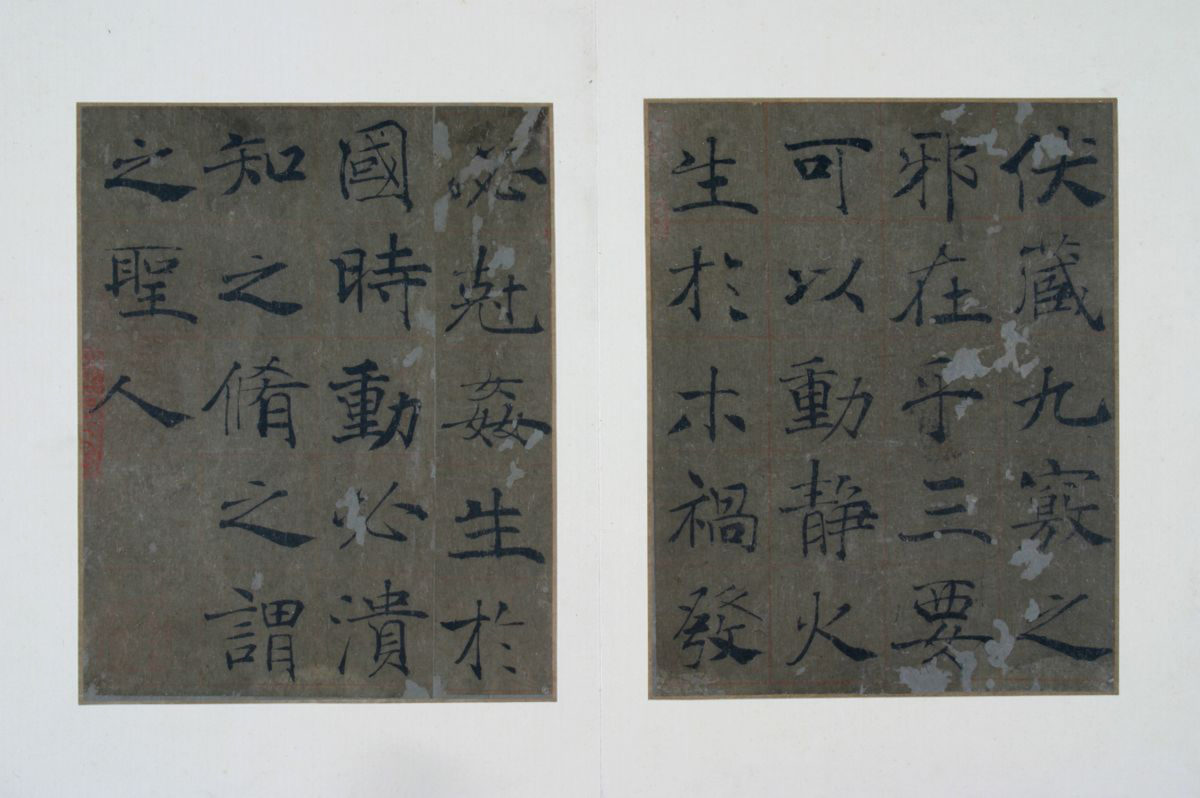 伏藏九竅之
邪在乎三要
可以動静火
生扵木禍發
必尅姦生扵
國時動必潰
知之脩之謂
之聖人